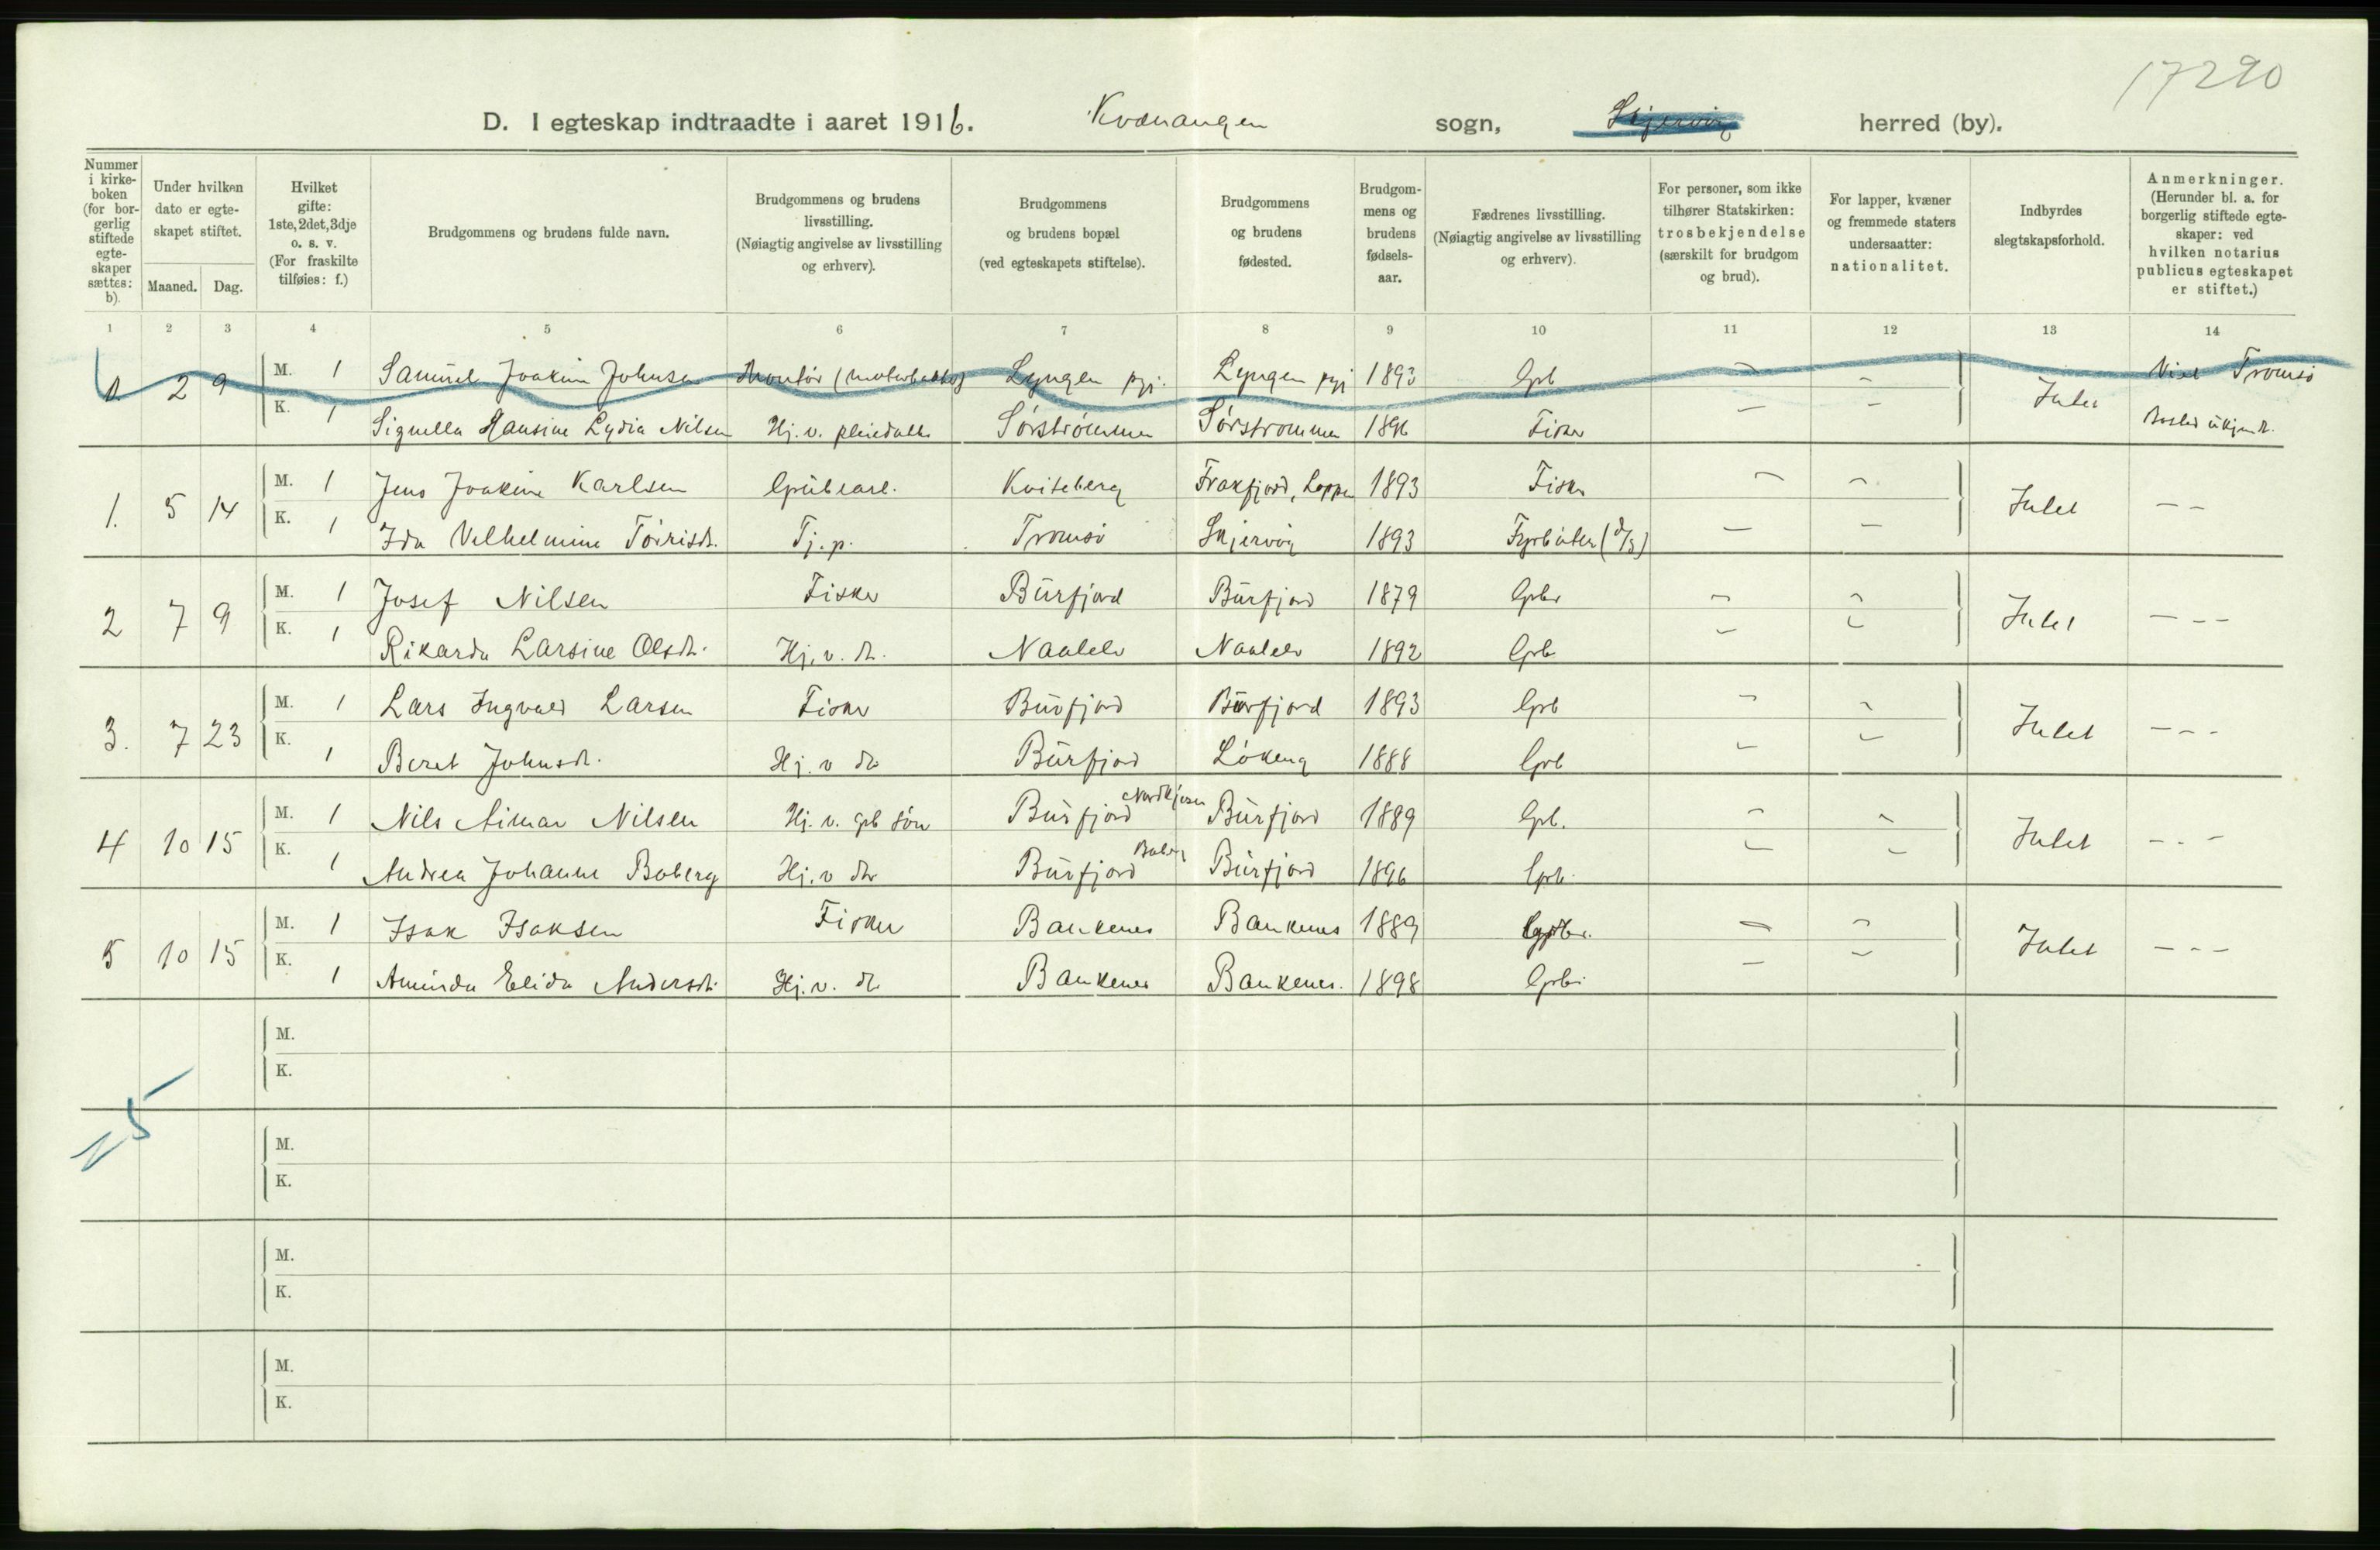 17290
D. I egteskap indtraadte i aaret 1916. Kvænangen sogn, Skjervøy herred (by).
Nummer i kirkeboken (for borgerlig stiftede egteskaper sættes: b).
Under hvilken dato er egteskapet stiftet.
Maaned. Dag.
Hvilket gifte: 1ste, 2det, 3dje o. s. v. (For fraskilte tilføies: f.)
Brudgommens og brudens fulde navn.
Brudgommens og brudens livsstilling. (Nøiagtig angivelse av livsstilling og erhverv).
Brudgommens og brudens bopæl (ved egteskapets stiftelse).
Brudgommens og brudens fødested.
Brudgommens og brudens fødselsaar.
Fædrenes livsstilling. (Nøiagtig angivelse av livsstilling og erhverv).
For personer, som ikke tilhører Statskirken: trosbekjendelse (særskilt for brudgom og brud).
For lapper, kvæner og fremmede staters undersaatter: nationalitet.
Indbyrdes slegtskapsforhold.
Anmerkninger. (Herunder bl. a. for borgerlig stiftede egteskaper: ved hvilken notarius publicus egteskapet er stiftet.)
1 2 3 4 5 6 7 8 9 10 11 12 13 14
1 2 9 M. 1 Samuel Joakim Johnsen Montør Lyngen pgj. Lyngen pgj 1893 Grb — — Intet Viet Tromsø
K. 1 Signella Hansine Lydia Nilsen Hj. v. pleiedatter Sørstrømmen Sørstrømmen 1896 Fisker — — Bosted ukjendt.
1. 5 14 M. 1 Jens Joakim Karlsen Grubearb. Kviteberg Frakfjord, Loppen 1893 Fisker — — Intet — —
K. 1 Ida Vilhelmine Tørrisdt. Tj. p. Tromsø Skjervøy 1893 Fyrbøter (d/s) — —
2 7 9 M. 1 Josef Nilsen Fisker Burfjord Burfjord 1879 Grbr — — Intet — — —
K. 1 Rikarda Larsine Olsdt. Hj. v. dt. Naalelv Naalelv 1892 Grb — —
3. 7 23 M. 1 Lars Ingvald Larsen Fisker Burfjord Burfjord 1893 Grb — — Intet — — —
K. 1 Beret Johnsdt. Hj. v dtr Burfjord Løkeng 1888 Grb — —
4 10 15 M. 1 Nils Aimar Nilsen Hj. v. grb søn Burfjord Nordkjosen Burfjord 1889 Grb. — — Intet — — —
K. 1 Andrea Johanne Boberg Hj. v dtr Burfjord Boberg Burfjord 1896 Grb. — —
5 10 15 M. 1 Isak Isaksen Fisker Bankenes Bankenes 1889 Grbr. — — Intet — — —
K. 1 Aminda Elida Andersdt. Hj. v. dt. Bankenes Bankenes. 1898 Grbr. — —
M.
K.
5
M.
K.
M.
K.
M.
K.